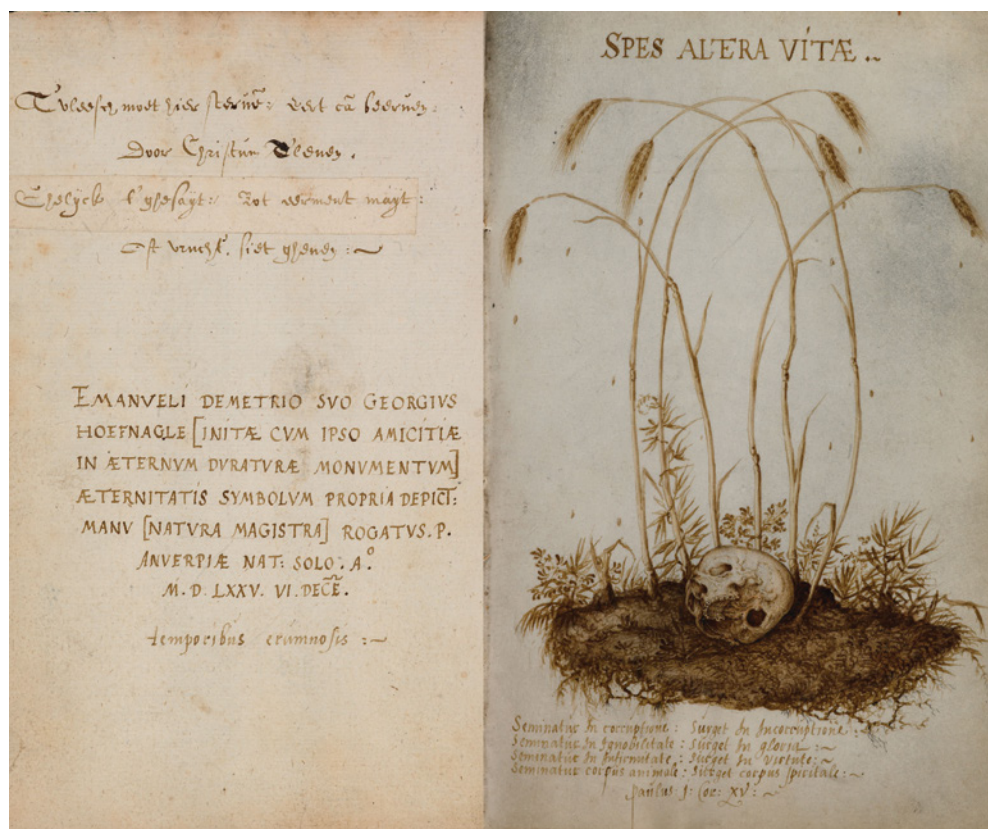 Tvleesch moet hier steruē: eert cā beeruen.
Door Christum Tleuen.
Ghelyck t'ghesayt: Tot verment mayt:
Est vrucht, siet gheuen:~
EMANVELI DEMETRIO SVO GEORGIVS
HOEFNAGLE [INITÆ CVM IPSO AMICITIÆ
IN ÆTERNVM DVRATVRÆ MONVMENTVM]
ÆTERNITATIS SYMBOLVM PROPRIA DEPICT:
MANV [NATVRA MAGISTRA] ROGATVS. P.
ANVERPIÆ NAT: SOLO. A.º
M. D. LXXV. VI. DECĒ.
temporibus erumnosis :~
SPES ALTERA VITÆ..
Seminatur In corruptione : Surget In Incorruptione :
Seminatur In Ignobilitate : Surget In gloria :~
Seminatur In Infirmitate : Surget In virtute :~
Seminatur corpus animale : Surget corpus spiritale :~
Paulus. j. Cor: XV :~